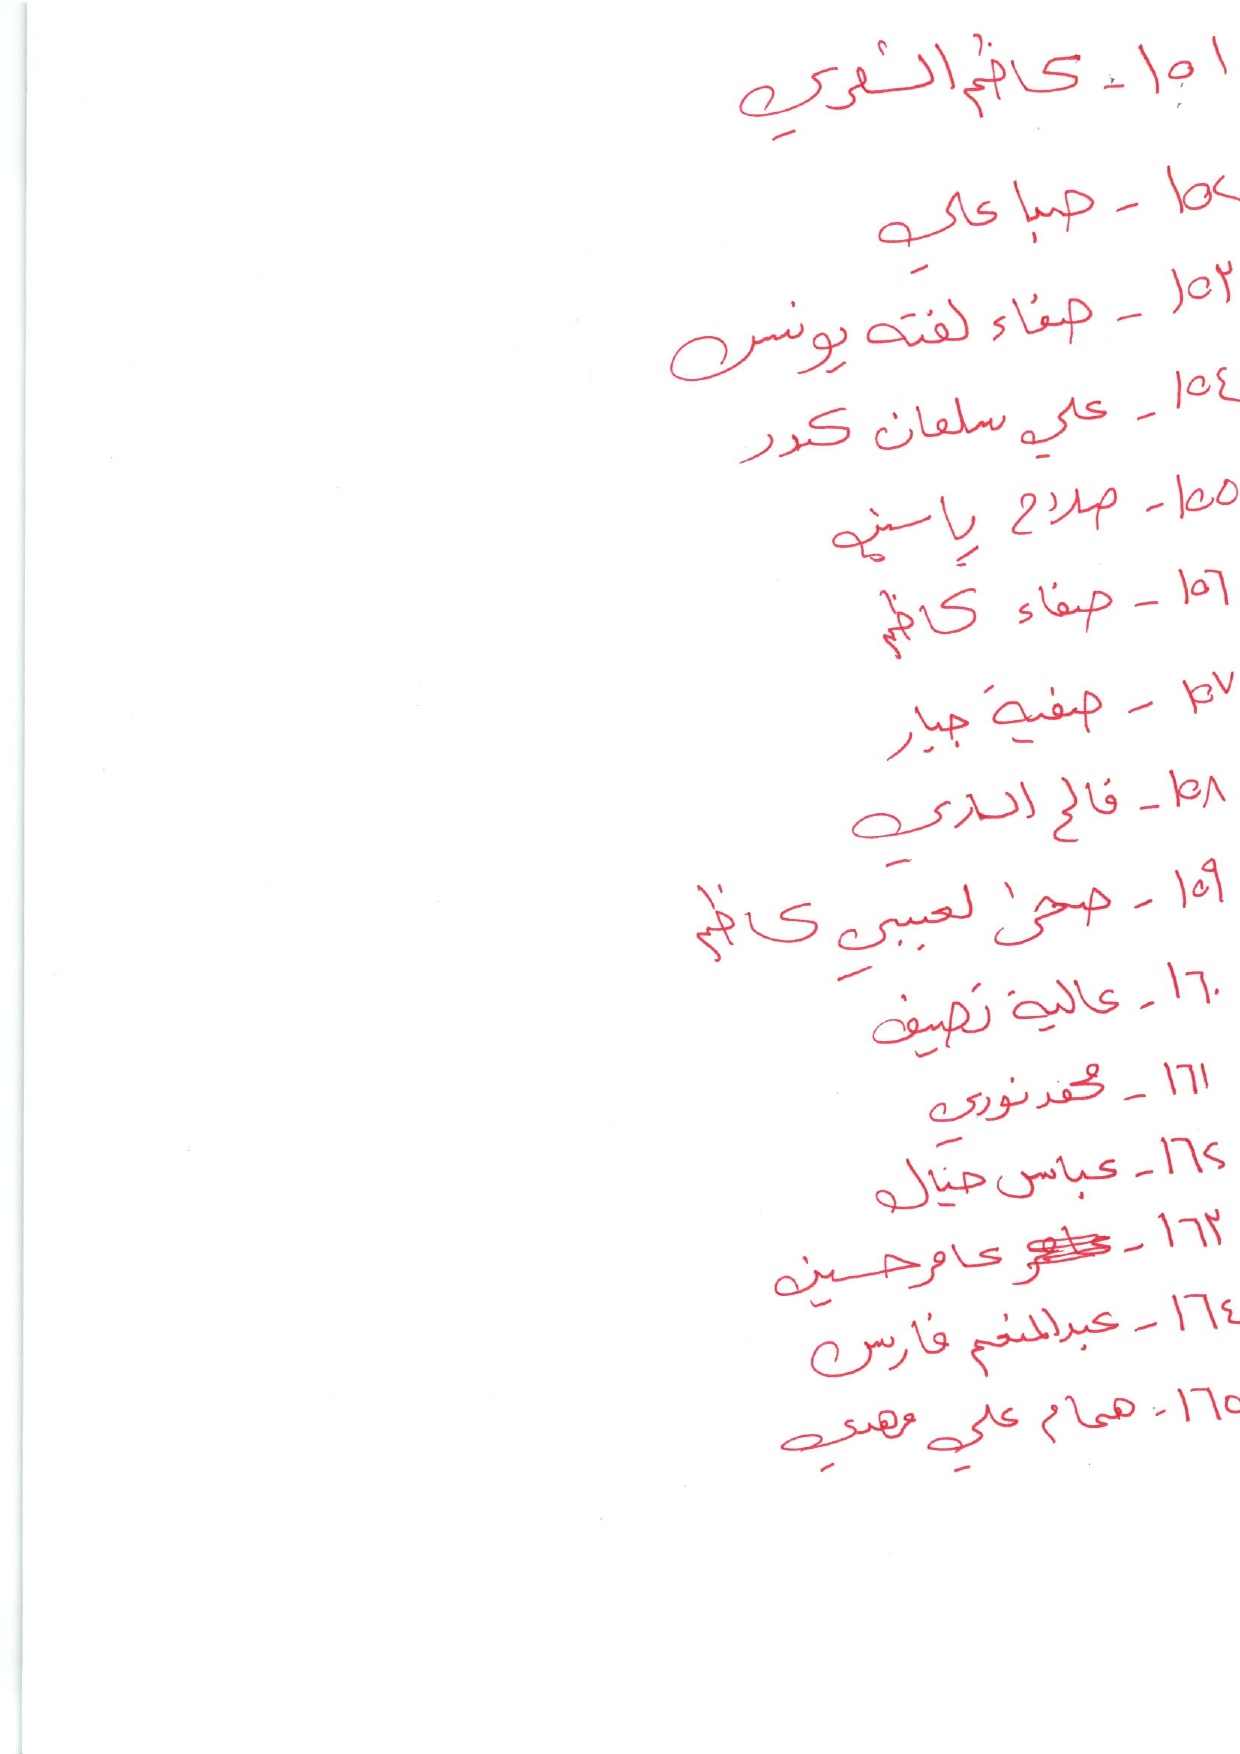 ١٥١ - كاظم الشمري
١٥٢ - صبا علي
١٥٣ - صفاء لفته يونس
١٥٤ - علي سلمان كدر
١٥٥ - صلاح ياسين
١٥٦ - صفاء كاظم
١٥٧ - صفية جبار
١٥٨ - فالح الساري
١٥٩ - ضحى لعيبي كاظم
١٦٠ - عالية نصيف
١٦١ - محمد نوري
١٦٢ - عباس حيال
١٦٣ - عامر حسين
١٦٤ - عبدالمنعم فارس
١٦٥ - همام علي مهدي